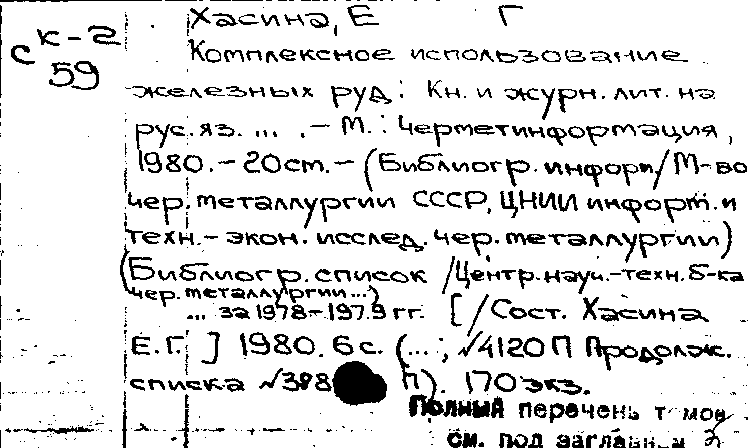 Хасина, Е Г
с к-2
59
Комплексное использование
железных руд: Кн. и журн. лит. на
рус. яз. ... . – М. : Черметинформация,
1980. – 20 см. – (Библиогр. информ / М-во
чер. металлургии СССР, ЦНИИ информ. и
техн.-экон. исслед. чер. металлургии)
(Библиогр. список / Центр. науч.-техн. б-ка
чер. металлургии ...)
... за 1978-1979 гг. [ / Сост. Хасина
Е. Г. ] 1980. 6 с. (... ; √4120 П Продолж.
списка √398 П). 170 экз.
Полный перечень томов
см. под заглавием